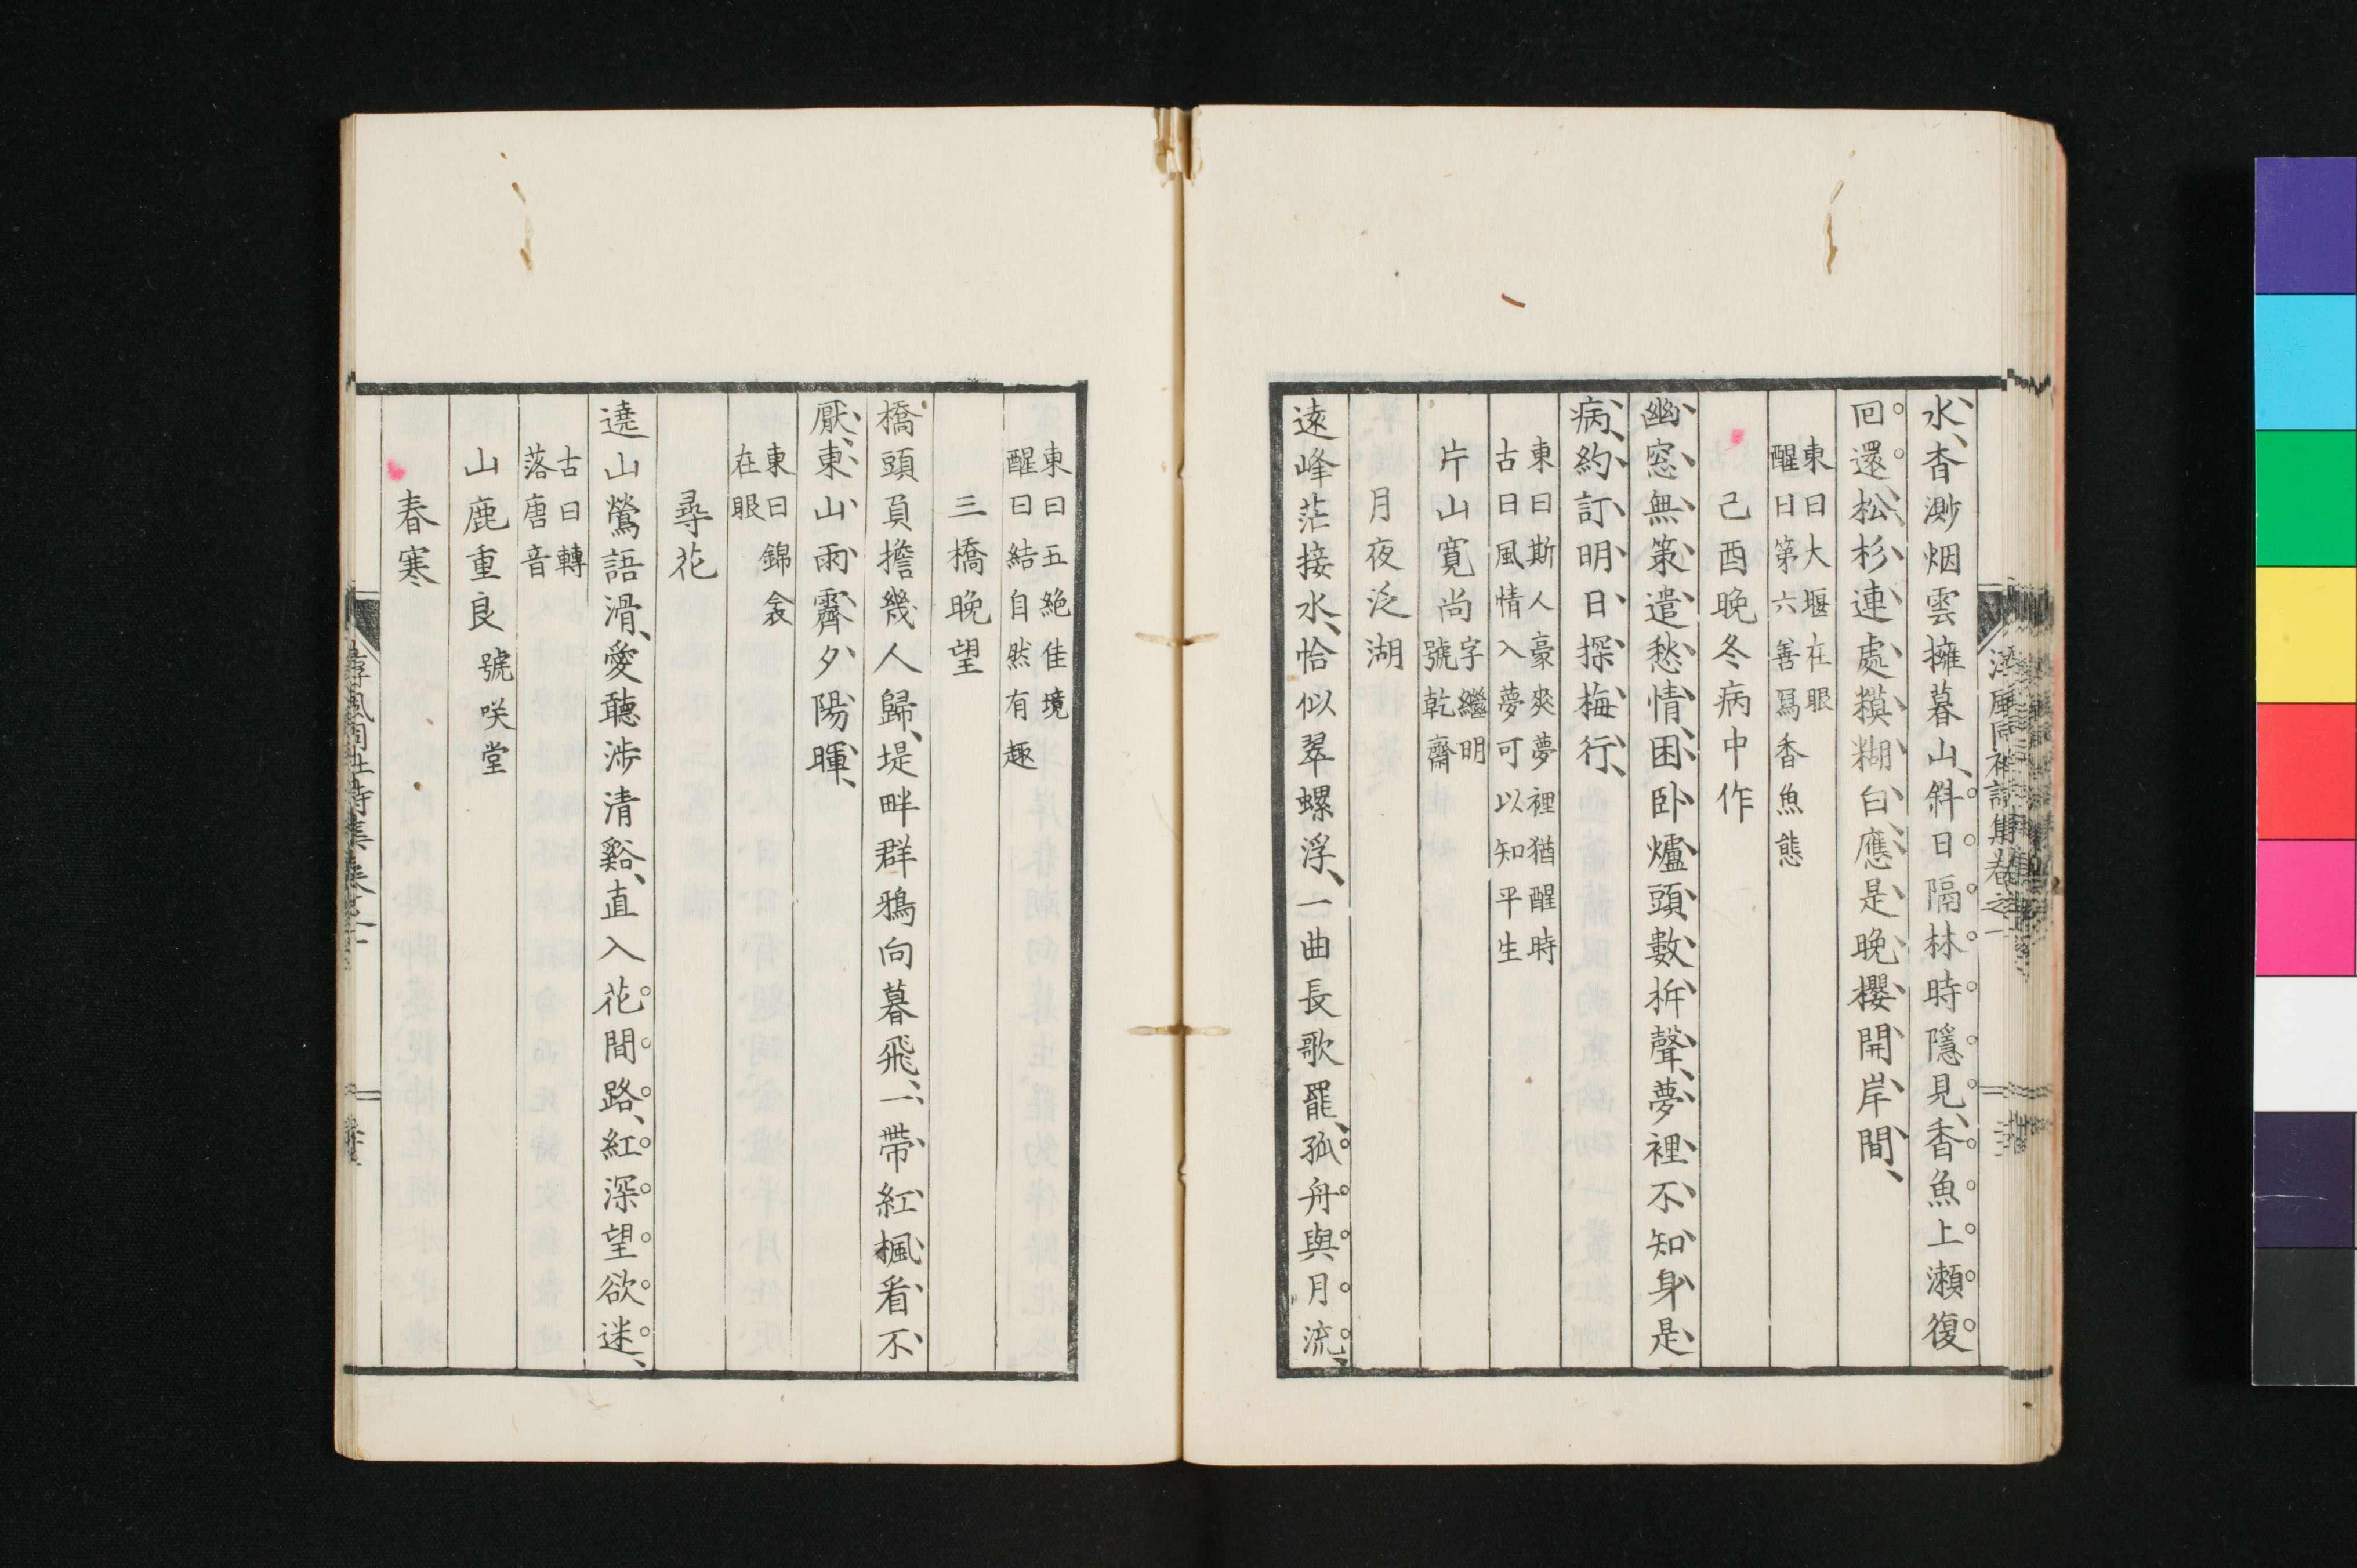 水、杳渺烟雲擁暮山、斜日隔林時隱見、香魚上瀬復
回還、松杉連處糢糊白、應是晩櫻開岸間、
東曰大堰在眼
醒曰第六善寫香魚態
己酉晩冬病中作
幽窓無策遣愁情、困卧爐頭數柝聲、夢裡不知身是
病、約訂明日探梅行、
東曰斯人豪爽夢裡猶醒時
古曰風情入夢可以知平生
片山寛尚 字繼明
號乾齋
月夜泛湖
遠峰茫接水、恰似翠螺浮、一曲長歌罷、孤舟與月流、
東曰五絶佳境
醒曰結自然有趣
三橋晩望
橋頭負擔幾人歸、堤畔群鴉向暮飛、一帶紅楓看不
厭、東山雨霽夕陽暉、
東曰錦衾
在眼
尋花
遶山鶯語滑、愛聽涉清谿、直入花間路、紅深望欲迷、
古曰轉
落唐音
山鹿重良 號咲堂
春寒